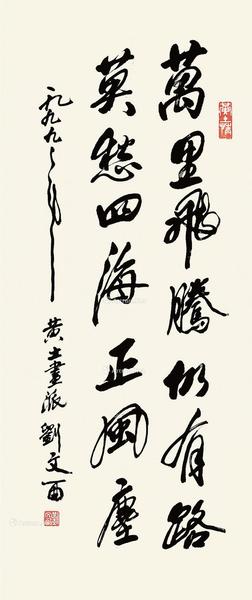 萬里飛騰仍有路
莫愁四海正風塵
一九九九年
黄土畫派劉文西